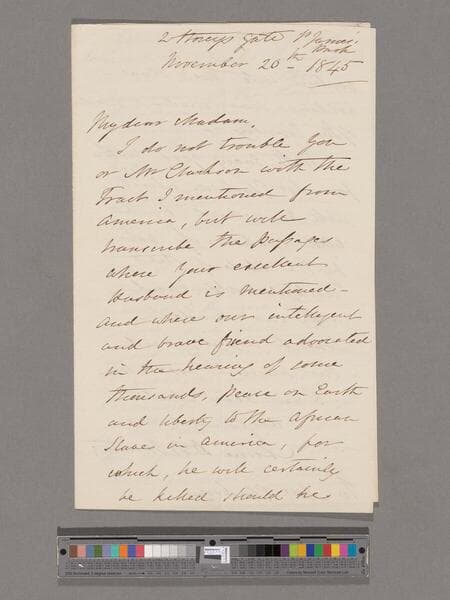 2 Storeys gate St James's
Park
November 20th 1845
My dear Madam,
I do not trouble you
or Mr Clarkson with the
Tract I mentioned from
America, but will
transcribe the passages
where your excellent
Husband is mentioned -
and where our intelligent
and brave friend advocated
in the hearing of some
thousands, peace on Earth
and liberty to the African
Slave in America, for
which, he will certainly
be killed should he